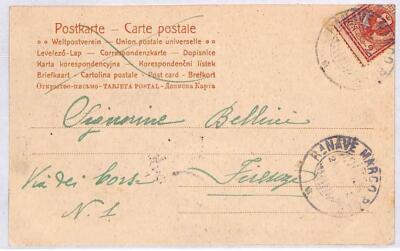 Postkarte – Carte postale
Weltpostverein – Union postale universelle
Levelező-Lap – Correspondenzkarte – Dopisnice
Karta korespondencyjna – Korespondenční listek
Briefkaart – Cartolina postale – Post card – Brefkort
Открытое-письмо – Tarjeta postal – Дописна Карта
RANAVE MARCO
Signorine Bellini
RANAVE MARCO
Via dei Corsi Firenze
N. 1